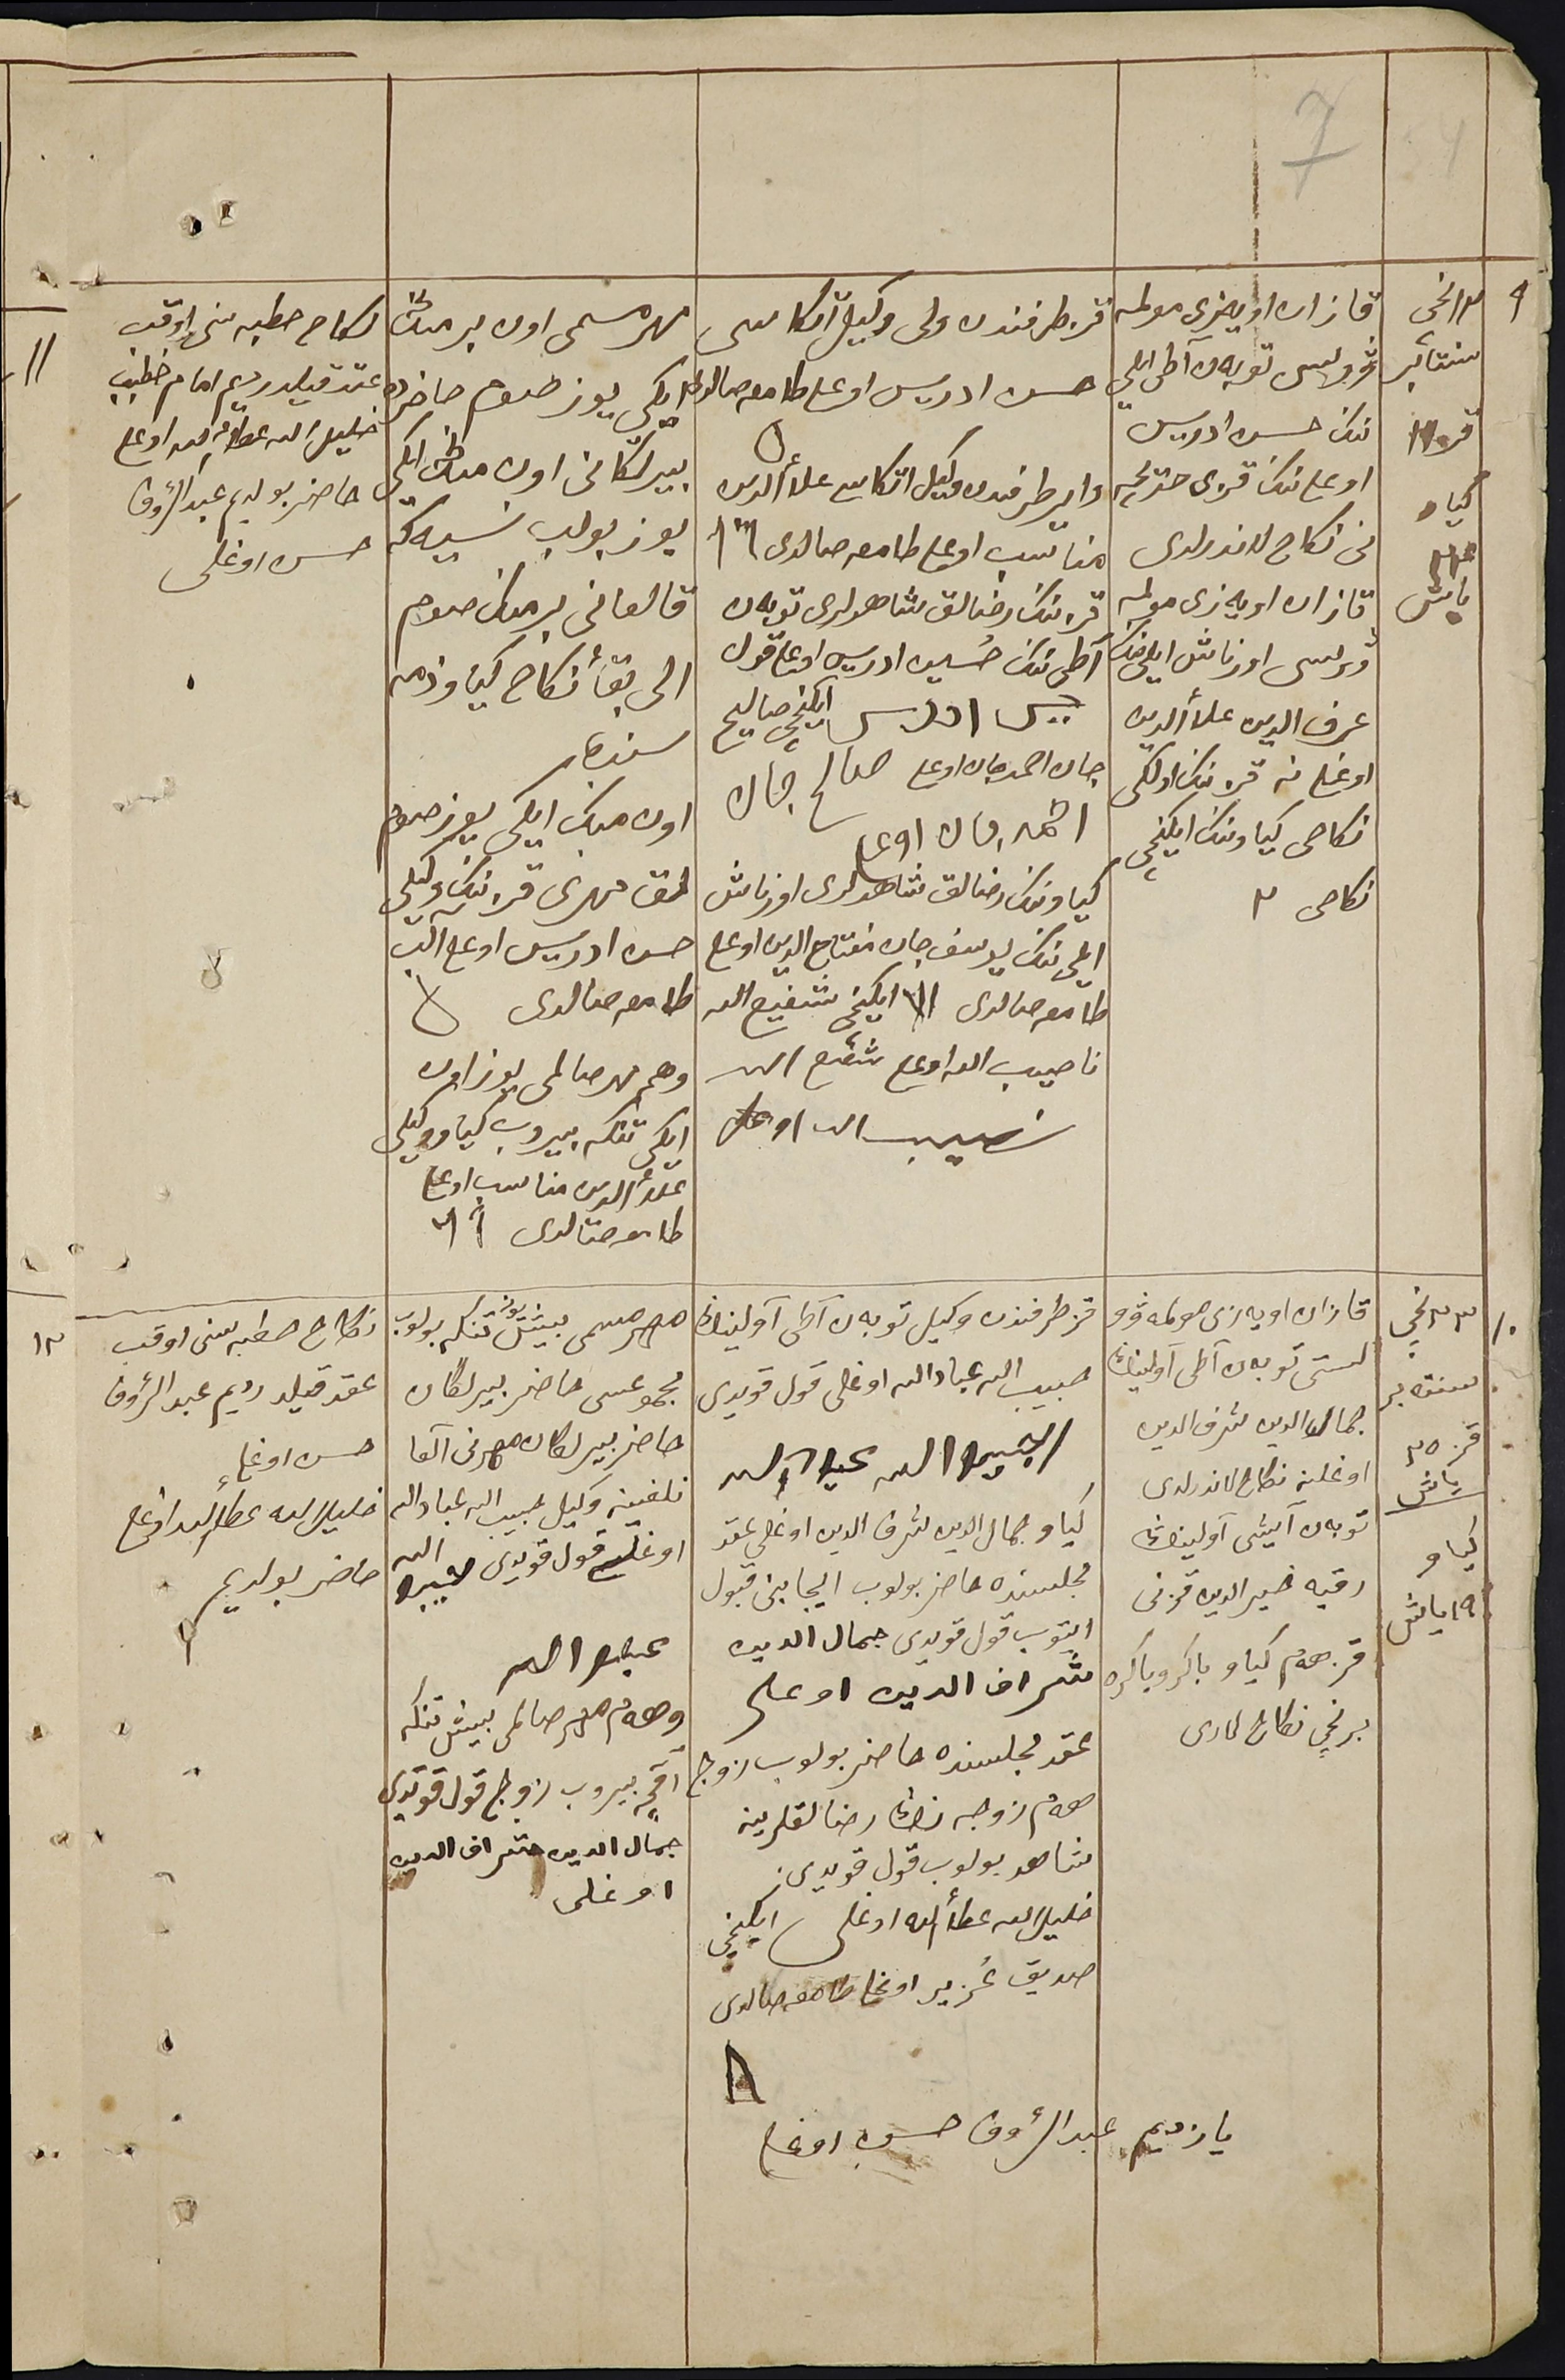 7
٩
سنتابر
قز
کیاو
یاش
قازان اویازی
توبان آطی ایلی
ننک حسن ادریس
اوغلی ننک قزی خدیجه
نی نکاح لاندرلدی
قازان اویازی
اورناش ایلی ننک
علأ الدین
اوغلی نه قز ننک اولکی
نکاحی کیاو ننک ایکنچی
نکاحی ٢
قز طرفندن ولی وکیل آتکاسی
حسن ادریس اوغلی طامغه صالدی
وایر طرفندن وکیل اتکاسی علأ الدین
مناسب اوغلی طامغه صالدی
قز ننک رضالق شاهدلری توبان
آطی ننک حسین ادریس اوغلی قول
ایکنچی صالیح
جان احمدجان اوغلی صالح جان
احمد جان اوغلی
کیاو ننک رضالق شاهدلری اورناش
ایلی ننک یوسف جان مفتاح الدین اوغلی
طامغه صالدی ایکنچی شفیع الله
ناصیب الله اوغلی شفیع الله
نصیب الله اوغلی
مهر مسمی اون بر منک
ایکی یوز صوم حاضرده
بیرلکانی اون منک ایکی
یوز بولب نسیه که
قالغانی بر منک صوم
الی بقأ نکاح کیاو ذمه
سنده
اون منک ایکی یوز صوم
لق مهری قز ننک وکیلی
حسن ادریس اوغلی آلب
طامغه صالدی
وهم مهر صالمی یوز اون
ایکی تنکه بیروب کیاو وکیلی
علأ الدین مناسب اوغلی
طامغه صالدی
نکاح خطبه سنی اوقب
عقد قیلدردیم امام خطیب
خلیل الله عطأ الله اوغلی
حاضر بولدیم عبدالرؤف
حسن اوغلی
١١
١٠
٢٣ نچی
سنتەبر
قز ٢٥
یاش
کیاو
١٩ یاش
قازان اویازی
توبان آطی آولینک
جمال الدین شرف الدین
اوغلینه نکاح لاندرلدی
توبان آولینک
رقیه خیرالدین قزنی
قز هم کیاو باکر و باکره
برنچی نکاح لاری
قز طرفندن وکیل توبان آطی آولینک
حبیب الله عباد الله اوغلی قول قویدی
کیاو جمال الدین شرف الدین اوغلی عقد
مجلسنده حاضر بولوب ایجابنی قبول
ایتوب قول قویدی جمال الدین
شراف الدین اوغلی
عقد مجلسنده حاضر بولوب زوج
هم زوجه ننک رضالقلرینه
شاهد بولوب قول قویدی
خلیل الله عطأ الله اوغلی ایکنچی
صدیق عزیر اوغلی طامغه صالدی
مهر مسمی بیش یوز تنکه بولوب
مجموعسی حاضر بیرلگان
حاضر بیرلگان مهرنی آلغا
نلغینه وکیل حبیب الله عباد الله
اوغلی قول قویدی حبیب الله
عباد الله
وهم مهر صالمی بیش تنکه
آقچه بیروب زوج قول قویدی
جمال الدین شراف الدین
اوغلی
نکاح خطبه سنی اوقب
عقد قیلدردیم عبدالرؤف
حسن اوغلی
خلیل الله عطأ الله اوغلی
حاضر بولدیم
١٢
یازدیم عبدالرؤف حسن اوغلی